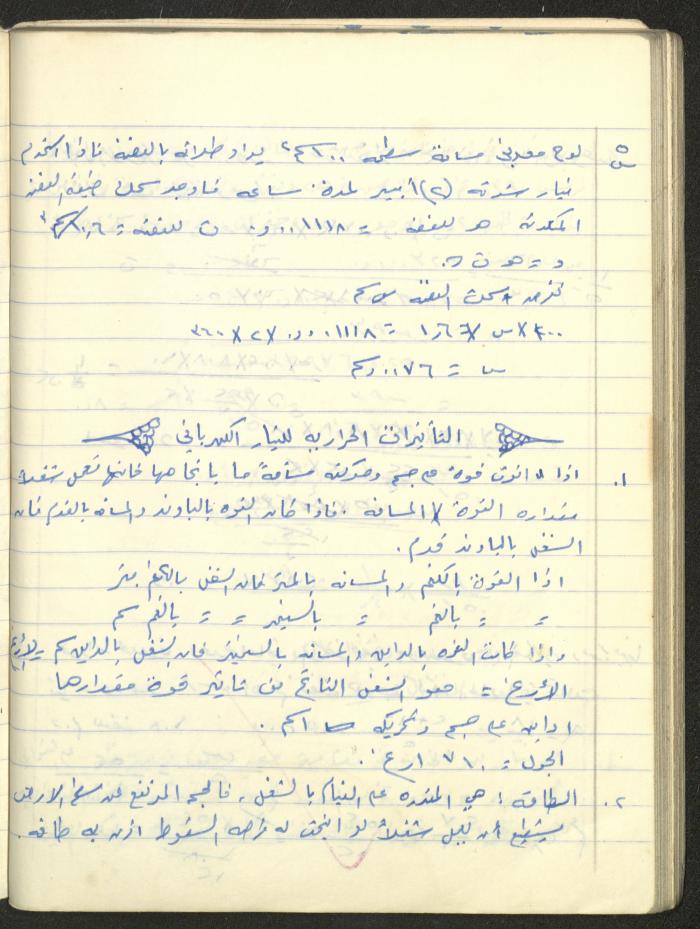 س٥ لوح معدني مساحة سطحه ١٠٠سم٢ يراد طلائه بالفضة فاذا استخدم
تيار شدته (٢) أمبير لمدة ساعه فاوجد سمك طبقة الفضة
المكافئ هـ للفضة = ٠٠١١١٨و٠ ث للفضة = ١٠٫٦
و = هـ ت ن
نفرض سمك الفضة س سم
١٠٠ × س × ١٠٫٦ = ٠٠١١١٨و٠ × ٢ × ٣٦٠٠
س = ٠٠٧٦و سم
التأثيرات الحراريه للتيار الكهربائي
١. اذا اثرت قوة على جسم وحركته مسافة ما باتجاهها فانها تعمل شغلاً
مقداره القوة × المسافه . فاذا كان القوه بالباوند والمسافه بالقدم فان
الشغل بالباوند قدم .
اذا القوة بالكغم والمسافه بالمتر فان الشغل بالكغم متر
= = بالغم = بالسنتمتر = = بالغم سم
واذا كانت القوه بالداين والمسافه بالسنتمتر فان الشغل بالداين سم = الأرغ
الأرغ = هو الشغل الناتج من تأثير قوة مقدارها
١ داين على جسم وتحريكه ١سم .
الجول = ١٠٧ ارغ .
٢. الطاقه : هي المقدره على القيام بالشغل ، فالجسم المرتفع عن سطح الارض
يستطيع أن يعمل شغلاً لو اتيحت له فرصه السقوط اذن به طاقه .